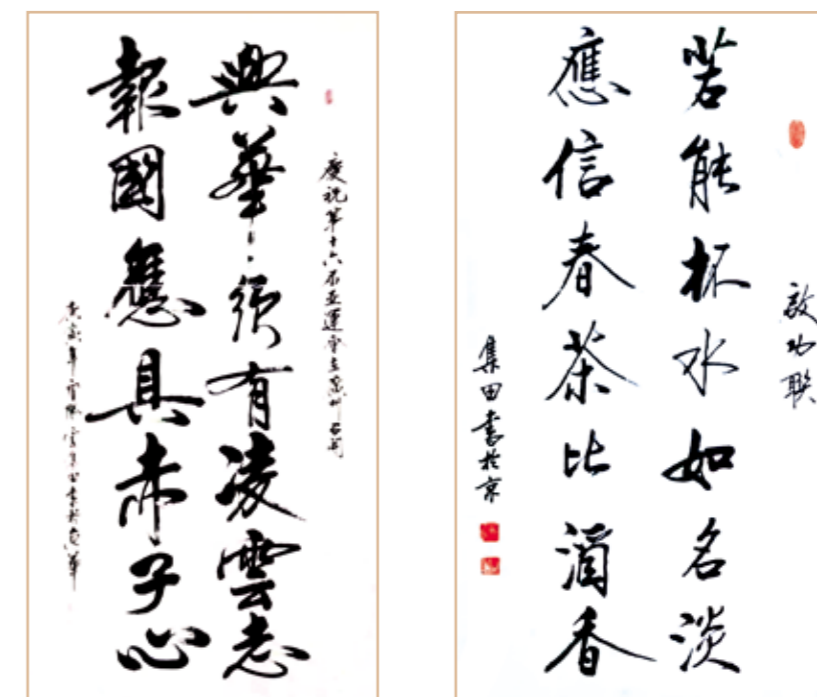 慶祝第十六屆亞運會在廣州召開
興華須有凌雲志
報國應具赤子心
庚寅年集田書於京華
啟功聯
若能杯水如名淡
應信春茶比酒香
集田書於京